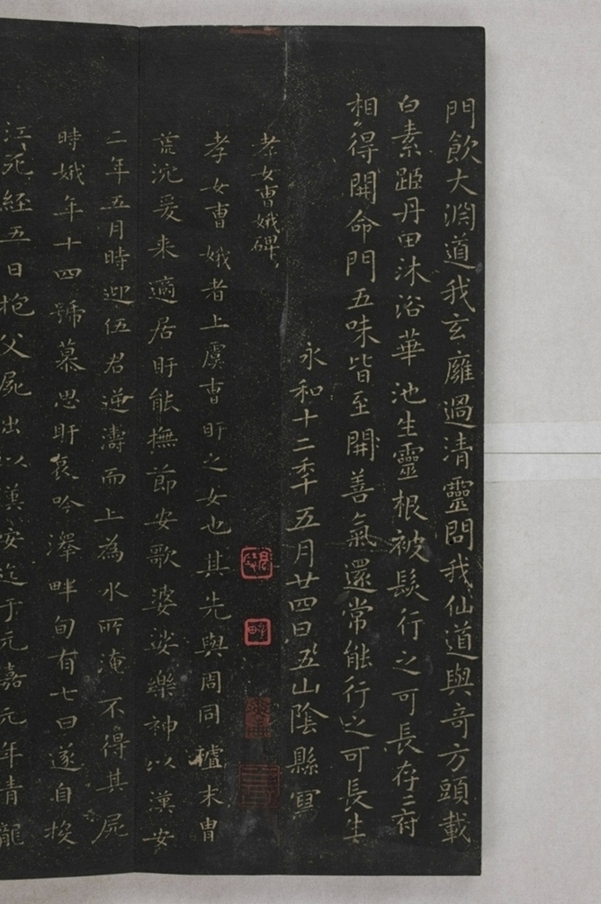 門飲大淵道我玄廱過清靈問我仙道與奇方頭載
白素距丹田沐浴華池生靈根被髮行之可長存二府
相得開命門五味皆至開善氣還常能行之可長生
永和十二年五月廿四日五山陰縣寫
孝女曹娥碑
孝女曹娥者上虞曹盱之女也其先與周同祖末冑
荒沉爰来適居盱能撫節安歌婆娑樂神以漢安
二年五月時迎伍君逆濤而上為水所淹不得其屍
時娥年十四號慕思盱哀吟澤畔旬有七日遂自投
江死經五日抱父屍出以漢安迄于元嘉元年青龍